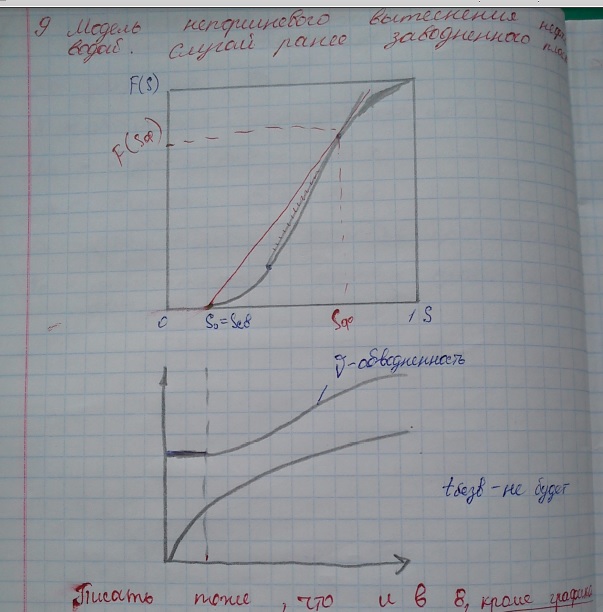 9 Модель непоршневого вытеснения нефти
водой. Случай ранее заводненного пласта
F(S)
F(Sф)
0
S₀=Sсв
Sф
1 S
γ-обводненность
tбезв - не будет
Писать тоже, что и в 8, кроме графика